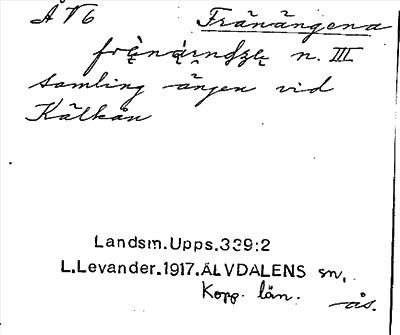 ÅV6 Frånängena
n. III
samling ängen vid
Kälkån
Landsm.Upps.339:2
L.Levander.1917.ÄLVDALENS sn,
Kopp. län.
ås.